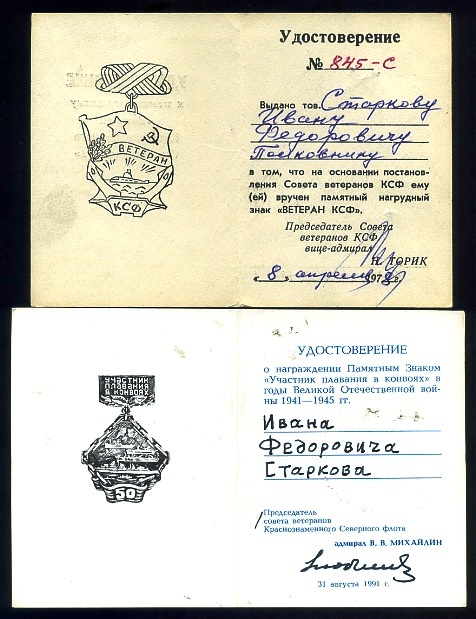 ВЕТЕРАН
КСФ
Удостоверение
№ 845-С
Выдано тов. Старкову
Ивану
Федоровичу
Полковнику
в том, что на основании постанов-
ления Совета ветеранов КСФ ему
(ей) вручен памятный нагрудный
знак «ВЕТЕРАН КСФ».
Председатель Совета
ветеранов КСФ
вице-адмирал
Н. ТОРИК
„8„ апреля 1978 г.
УЧАСТНИК
ПЛАВАНИЯ
В КОНВОЯХ
50
УДОСТОВЕРЕНИЕ
о награждении Памятным Знаком
«Участник плавания в конвоях» в
годы Великой Отечественной вой-
ны 1941—1945 гг.
Ивана
Федоровича
Старкова
Председатель
совета ветеранов
Краснознаменного Северного флота
адмирал В. В. МИХАЙЛИН
31 августа 1991 г.